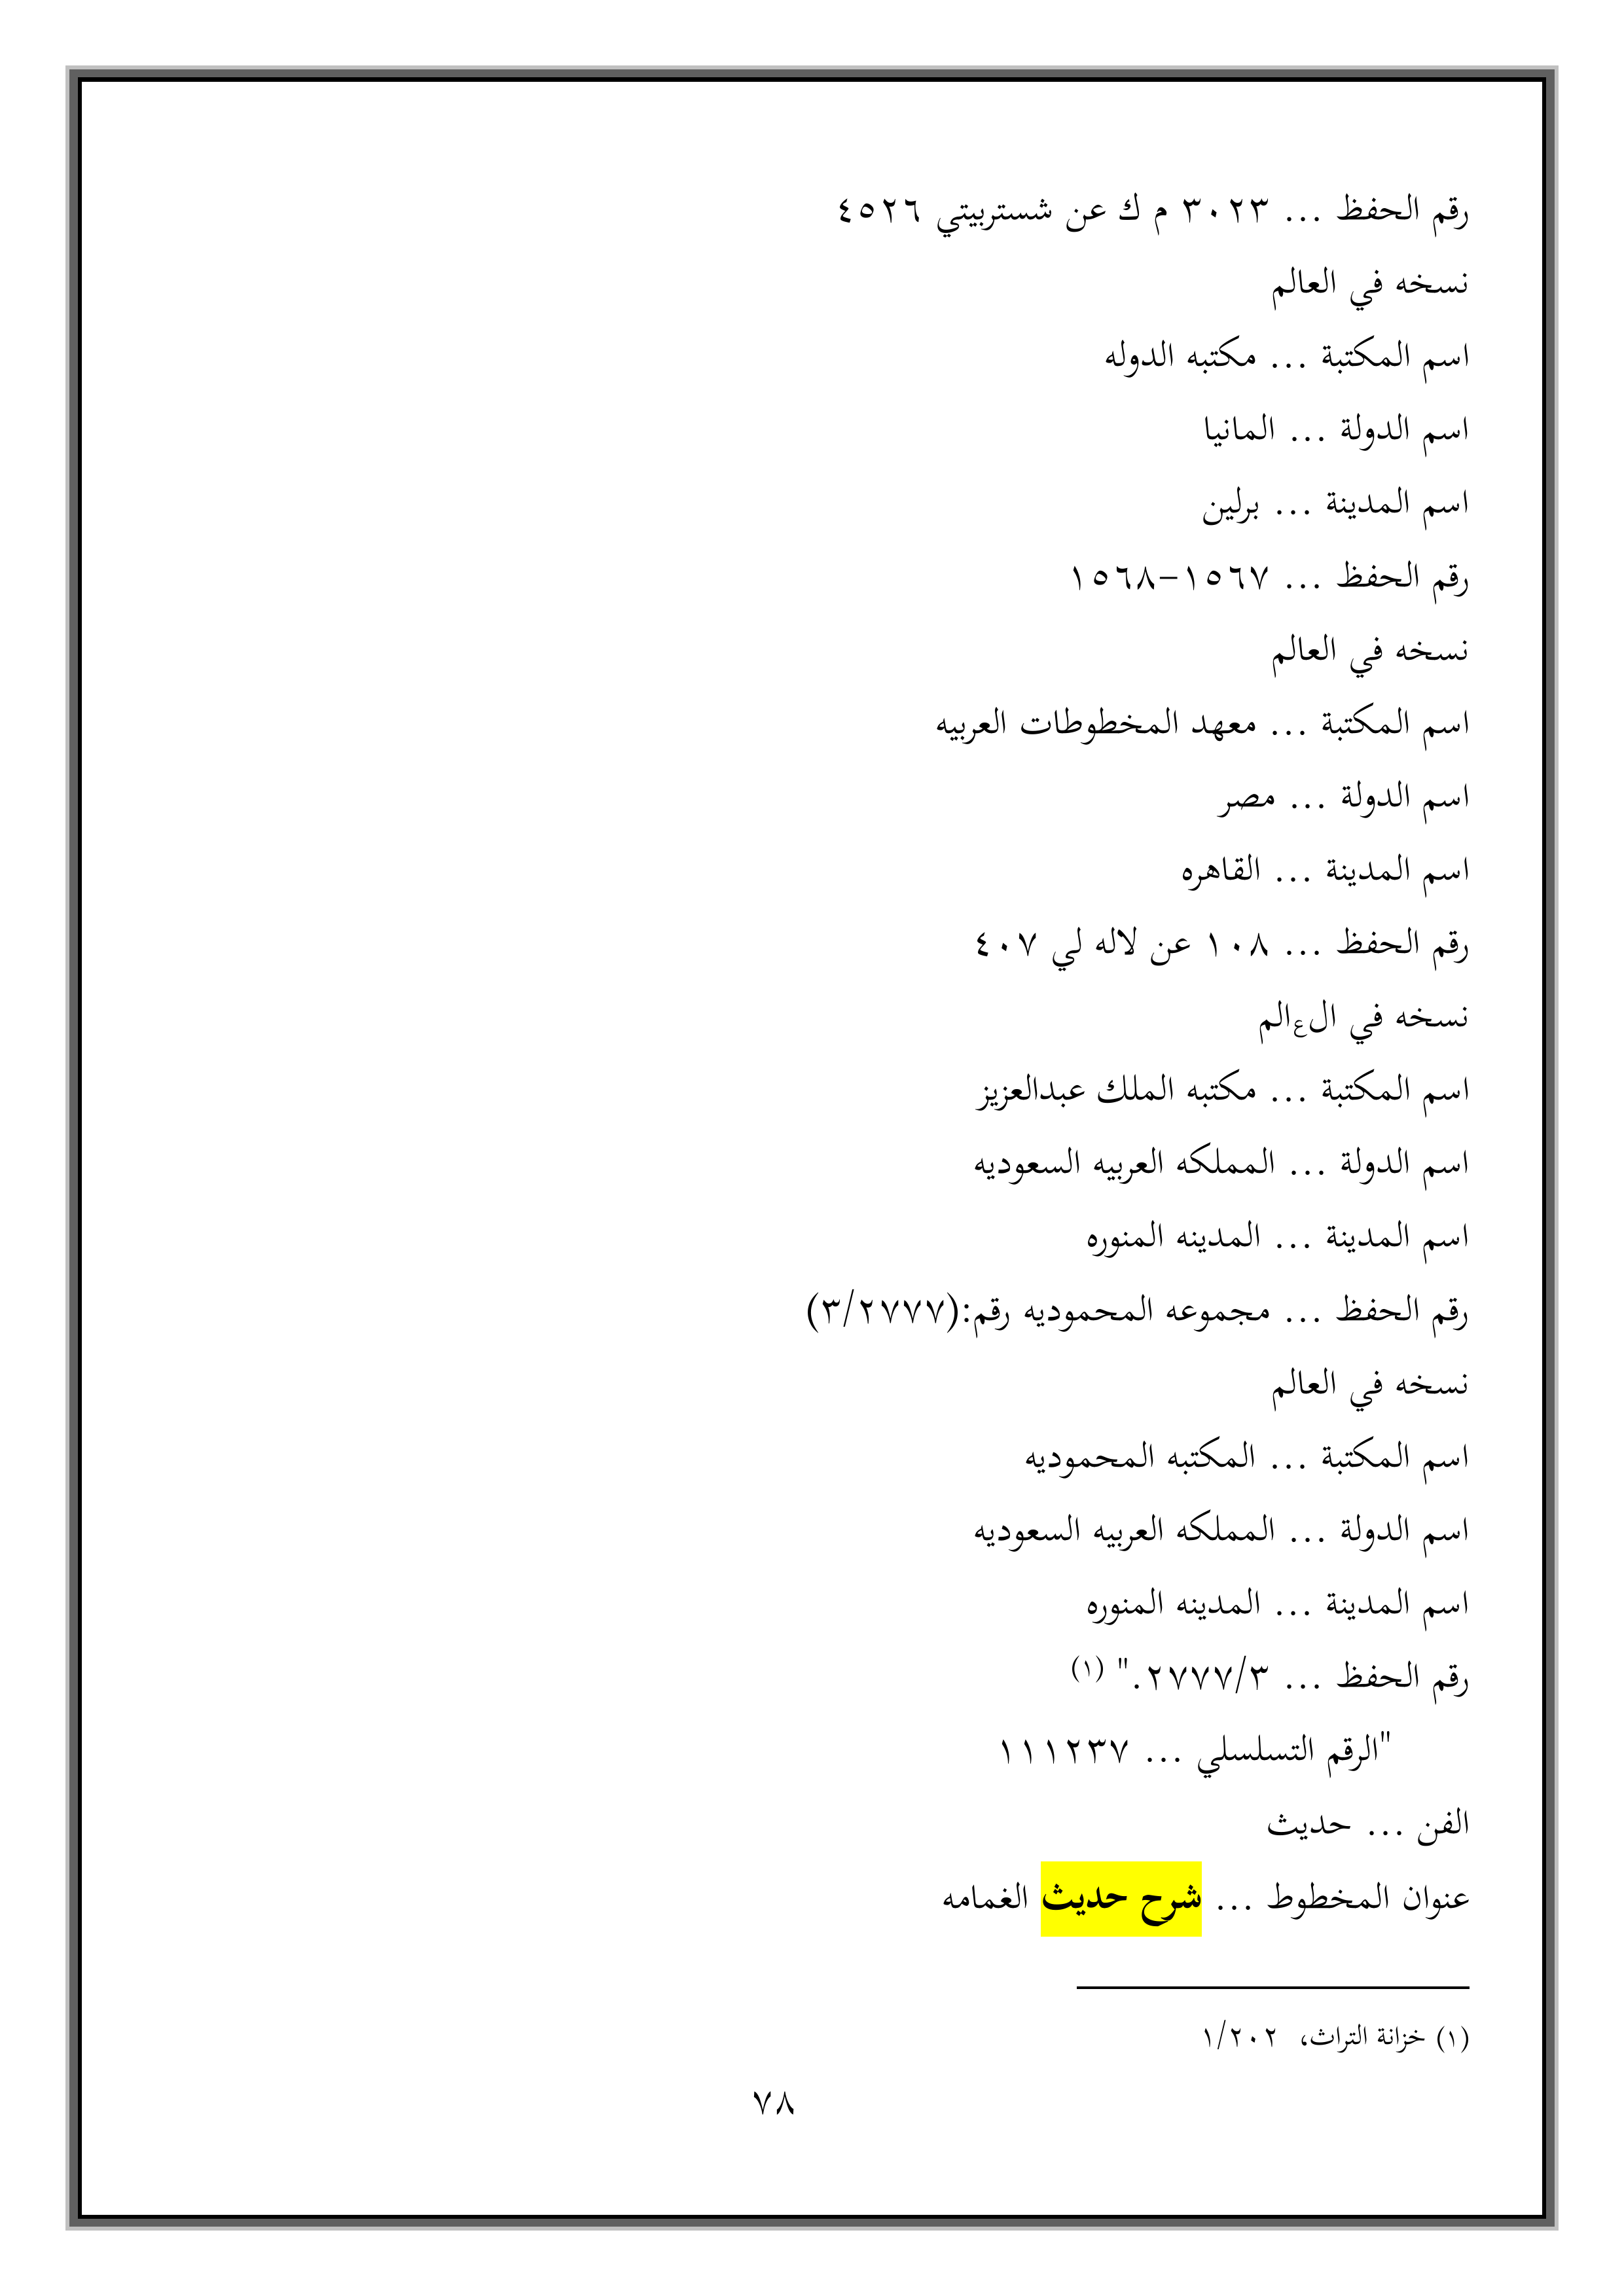 رقم الحفظ ... ٣٠٢٣ م ك عن شستربيتي ٤٥٢٦
نسخه في العالم
اسم المكتبة ... مكتبه الدوله
اسم الدولة ... المانيا
اسم المدينة ... برلين
رقم الحفظ ... ١٥٦٧-١٥٦٨
نسخه في العالم
اسم المكتبة ... معهد المخطوطات العربيه
اسم الدولة ... مصر
اسم المدينة ... القاهره
رقم الحفظ ... ١٠٨ عن لاله لي ٤٠٧
نسخه في العالم
اسم المكتبة ... مكتبه الملك عبدالعزيز
اسم الدولة ... المملكه العربيه السعوديه
اسم المدينة ... المدينه المنوره
رقم الحفظ ... مجموعه المحموديه رقم:(٣/٢٧٧٧)
نسخه في العالم
اسم المكتبة ... المكتبه المحموديه
اسم الدولة ... المملكه العربيه السعوديه
اسم المدينة ... المدينه المنوره
رقم الحفظ ... ٢٧٧٧/٣." (١)
"الرقم التسلسلي ... ١١١٢٣٧
الفن ... حديث
عنوان المخطوط ... شرح حديث الغمامه
(١) خزانة التراث، ١/٢٠٢
٧٨